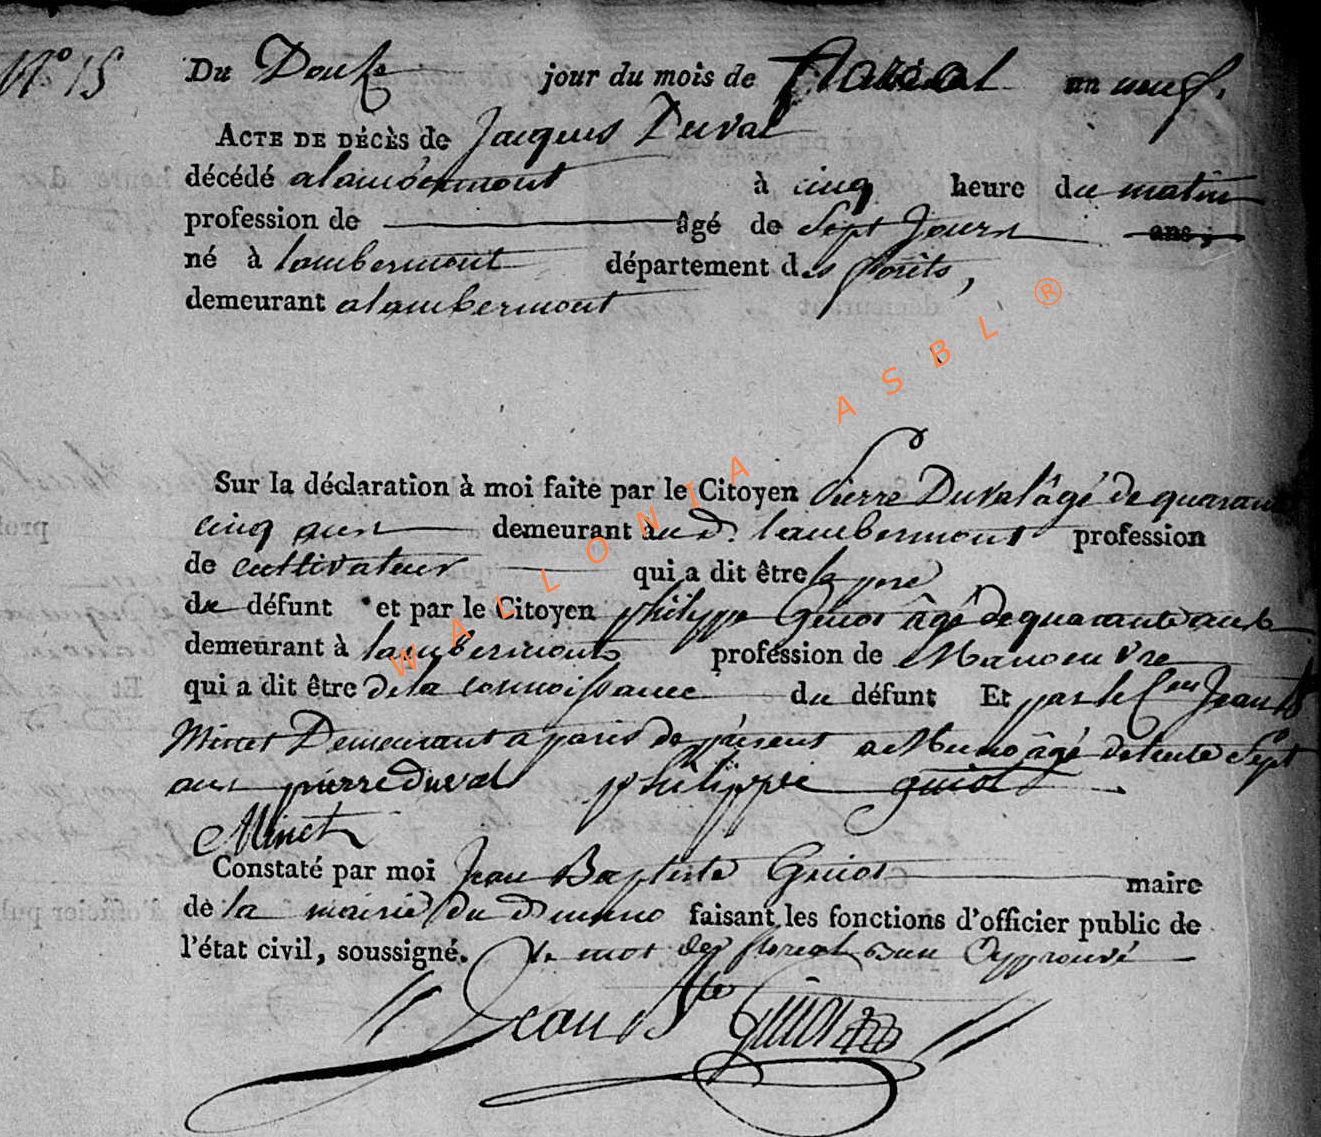 N° 15 Du Douze jour du mois de floreal an neuf.
ACTE DE DÉCÈS de Jacques Duval
décédé a lambermont à cinq heure du matin
profession de âgé de sept Jours ans;
né à lambermont département des forêts,
demeurant a lambermont
Sur la déclaration à moi faite par le Citoyen Pierre Duval âgé de quarante
cinq ans demeurant au d. lambermont profession
de cultivateur qui a dit être le pere
du défunt et par le Citoyen philippe Guiot âgé de quarante ans
demeurant à lambermont profession de Manoeuvre
qui a dit être de la connoissance du défunt Et par le C.en Jean B
Minet Demeurant a paris de présent a Muno âgé de trente sept
ans pierre duval philippe guiot
Minet
Constaté par moi Jean Baptiste Guiot maire
de la mairie du d muno faisant les fonctions d'officier public de
l'état civil, soussigné. le mot de floreal Approuvé
Jean Bte Guiot
WALLONIA ASBL ®